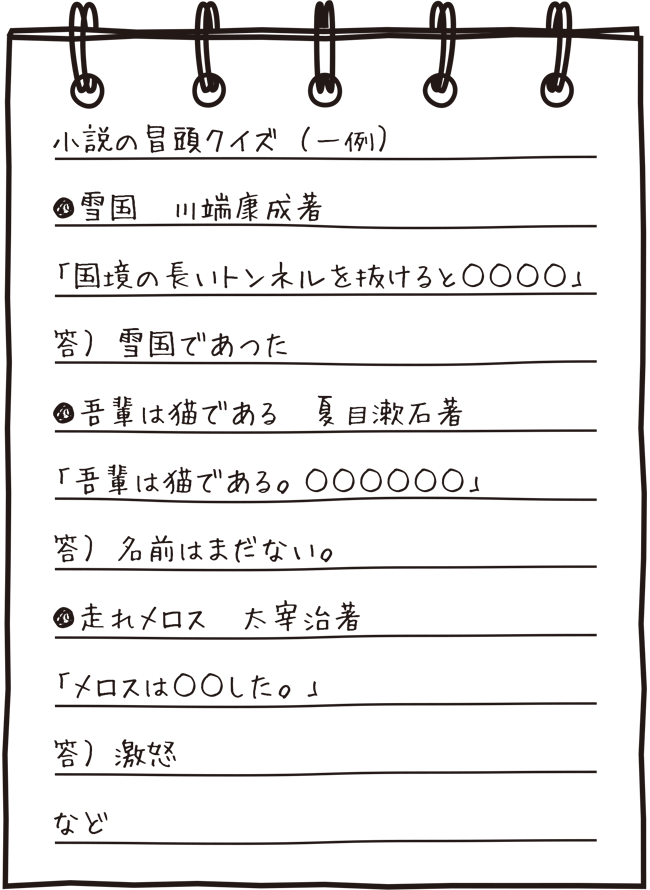 小説の冒頭クイズ（一例）
●雪国　川端康成著
「国境の長いトンネルを抜けると〇〇〇〇」
答）雪国であった
●吾輩は猫である　夏目漱石著
「吾輩は猫である。〇〇〇〇〇〇」
答）名前はまだない。
●走れメロス　太宰治著
「メロスは〇〇した。」
答）激怒
など